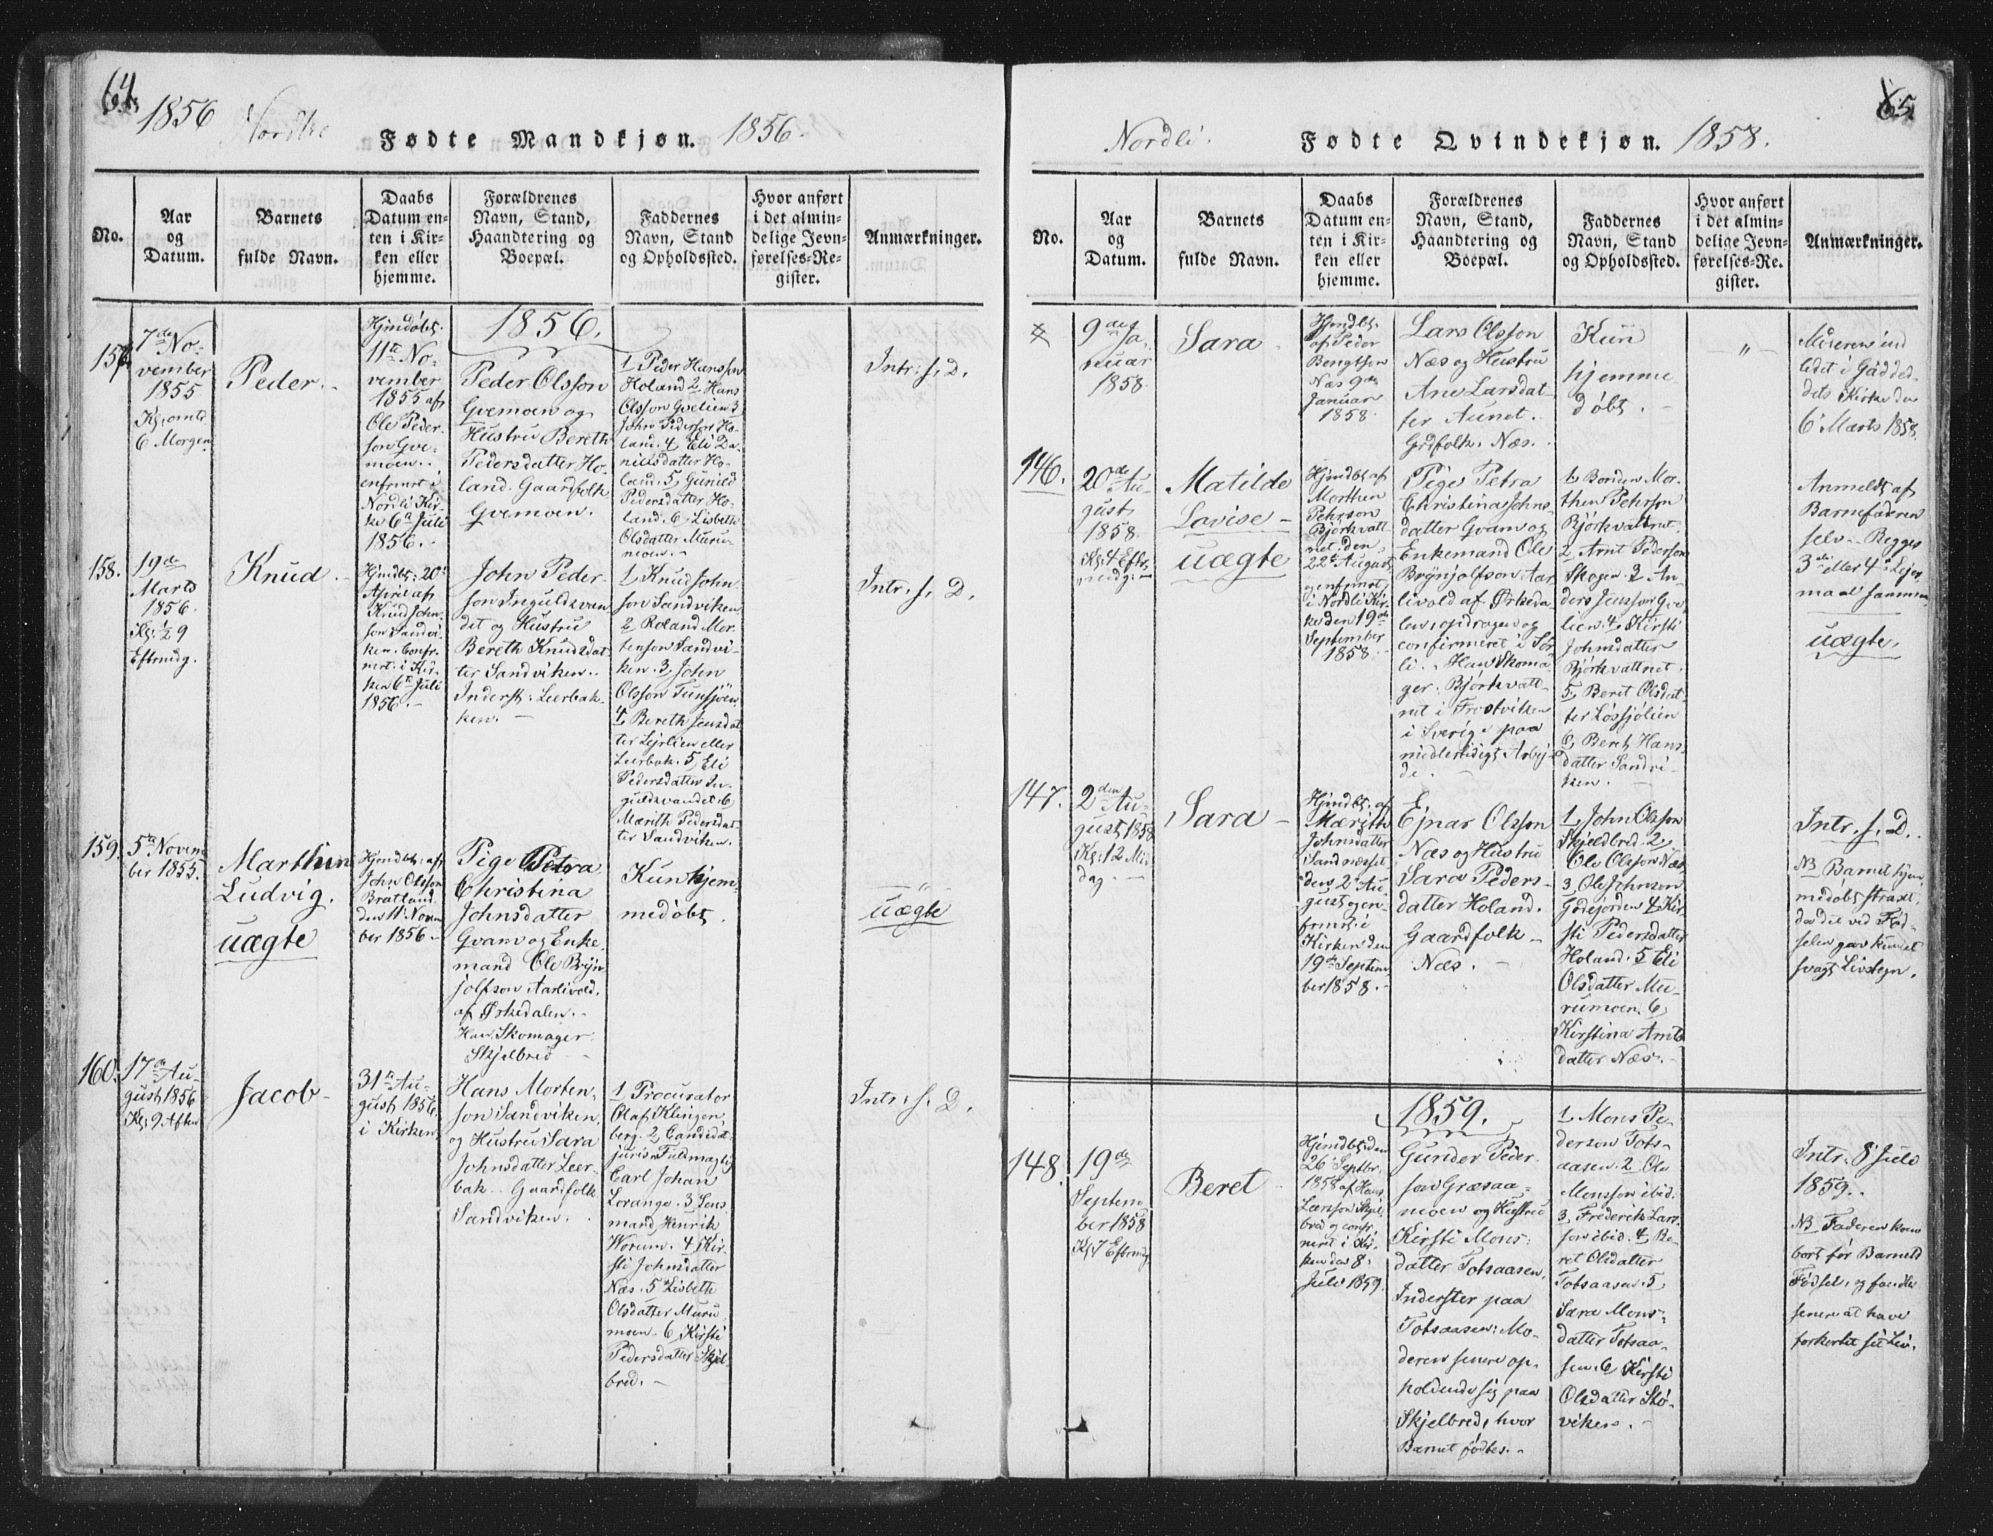 64.
1856 Nordli
Fødte Mandkjøn. 1856.
No.
Aar
og
Datum.
Barnets
fulde Navn.
Daabs
Datum en-
ten i Kir-
ken eller
hjemme.
Forældrenes
Navn, Stand,
Haandtering og
Boepæl.
Faddernes
Navn, Stand
og Opholdssted.
Hvor anført
i det almin-
delige Jevn-
førelses-Re-
gister.
Anmærkninger.
1856.
157.
7de No-
vember
1855
Kl: omtr
6 Morgen
Peder. -
Hjmdøbt.
11te No-
vember
1855 af
Ole Peder-
son Gve-
moen.
confirmert i
Nordli Kir-
ke 6te Juli
1856. -
Peder Olsson
Gvemoen og
Hustru Bereth
Pedersdatter Ho-
land. Gaardfolk
Gvemoen.
1 Peder Hansson
Holand 2 Hans
Olsson Gvelien 3
John Pederson Ho-
land. 4 Eli Da-
nielsdatter Ho-
land. 5, Gunild
Pedersdatter Ho-
land. 6. Lisbeth
Olsdatter Muru-
moen. -
Intr. f. D.
158.
19de
Marts
1856.
Kl: ½9
Eftmidg.
Knud -
Hjmdbt: 20de
April af
Knud John-
son Sandvi-
ken. Confir-
mert i Kir-
ken 6te Juli
1856. -
John Peder-
son Inguldsvan-
det og Hustru
Bereth Knudsdat-
ter Sandviken.
Inderst: Leerbak-
ken. -
1 Knud John-
son Sandviken
2 Roland Mor-
tenson Sandvi-
ken. 3, John
Olsson Tunssjöen
4, Bereth Jensdat-
ter Lejrlien eller
Leerbak. 5, Eli
Pedersdatter In-
guldsvandet. 6
Marith Pedersdat-
ter Sandviken. -
Intr. f. D.
159.
5te Novem
ber 1855.
Marthin
Ludvig.
uægte
Hjmdbt: af
John Olsson
Bratland
den 11te Novem
ber 1856 -
Pige Petra
Christina
Johnsdatter
Gvam og Enke-
mand Ole Brÿn-
jolfson Aarlivold.
af Ørkedalen. -
Han Skomager
Skjelbred -
Kun hjem
medöbt.
"
uægte
160.
17de Au-
gust 1856
Kl: 9 Aften
Jacob -
31te Au-
gust 1856.
i Kirken
Hans Morten-
son Sandviken.
og Hustru Sara
Johnsdatter Leer-
bak. Gaardfolk
Sandviken.
1 Procurator
Olaf Klingen-
berg. 2, Candidat
juris Fuldmægtig
Carl Johan
Lorange. 3 Lens-
mand Henrik
Worum. 4, Kir-
sti Johnsdatter
Næs. 5 Lisbeth
Olsdatter Muru-
moen. 6 Kirsti
Pedersdatter Skjel-
bred. -
Intr: f. D.
65.
Nordli.
Fødte Qvindekjøn. 1858.
No.
Aar
og
Datum.
Barnets
fulde Navn.
Daabs
Datum en-
ten i Kir-
ken eller
hjemme.
Forældrenes
Navn, Stand,
Haandtering og
Boepæl.
Faddernes
Navn, Stand
og Opholdssted.
Hvor anført
i det almin-
delige Jevn-
førelses-Re-
gister.
Anmærkninger.
9de Ja-
nuar
1858.
Sara -
Hjmdbt.
af Peder
Bengtsen
Næs 9de
Januar
1858.
Lars Olsson
Næs og Hustru
Ane Larsdat-
ter Aunet.
Grdfolk. Næs.
Kun
hjemme
döbt. -
"
Moderen ind
ledet i Gädde-
dets Kirke den
6te Marts 1858.
146.
20de Au-
gust
1858.
Kl: 4 Eftr-
middg. -
Matilde
Lovise -
uægte
Hjmdbt af
Morthen
Pehrson
Björkvatt-
net den
22de August
og confirmert
i Nordli Kir-
ke den 19de
September
1858. -
Pige Petra
Christina Johns-
datter Gvam og
Enkemand Ole
Brÿnjolfson Aar-
livold af Ørkeda-
len, opdragen og
confirmeret i Sör-
li. Han Skoma-
ger. Björkvatt-
net i Frostviken
i Sverig, paa
midlertidigt Arbej-
de. -
1, Bonden Mor-
then Pehrson
Björkvattnet.
2, Arnt Pederson
Skogen. 3 An-
ders Jensson Gve-
lien. 4, Kirsti
Johnsdatter
Björkvattnet.
5, Berit Olsdat-
ter Lössjölien
6, Beret Hans-
datter Sandvi-
ken. -
Anmeldt af
Barnefaderen
selv. Begges
3de eller 4de Lejer-
maal sammen
uægte.
147.
2den Au-
gust 1858
Kl: 12 Mid-
dag. -
Sara -
Hjmdbt. af
Mærith
Johnsdatter
Sandnæsset
den 2de Au-
gust og con-
firmt i
Kirken den
19de Septem-
ber 1858. -
Ejnar Olsson
Næs og Hustru
Sara Peders-
datter Holand.
Gaardfolk -
Næs. -
1, John Olsson
Skjelbred. 2,
Ole Olsson Næs
3, Ole Johnson
Godejorden 4, Kir-
sti Pedersdatter
Holand. 5, Eli
Olsdatter Mu-
rumoen. 6,
Kirstina Arnts-
datter Næs. -
Intr. f. D.
NB Barnet hjem-
medöbt strax,
da det ved Föd-
selen gav kun et
svagt Livstegn.
1859.
148.
19de
Septem-
ber 1858
Kl: 7 Eftmidg
Beret -
Hjmdbt den
26 Septbr.
1858 af Hans
Larsson Skjel-
bred og confir-
mert i Kir-
ken den 8.
Juli 1859.
Gunder Peder-
son Græsaa-
moen og Hustru
Kirsti Mons-
datter Totsaasen.
Inderster paa
Totsaasen: Mo-
deren senere op-
holdende sig paa
Skjelbred, hvor
Barnet födtes. -
1, Mons Pe-
derson Tots-
aasen. 2, Ole
Monsson ibid.
3, Frederik Lars-
son ibid. 4, Be-
ret Olsdatter
Totsaasen. 5,
Sara Mons-
datter Totsaa-
sen. 6, Kirsti
Olsdatter Stö-
viken. -
Intr: 8 Juli
1859.
NB Faderen kom
bort för Barnets
Födsel, og fandtes
senere at have
forkortet sit Liv.